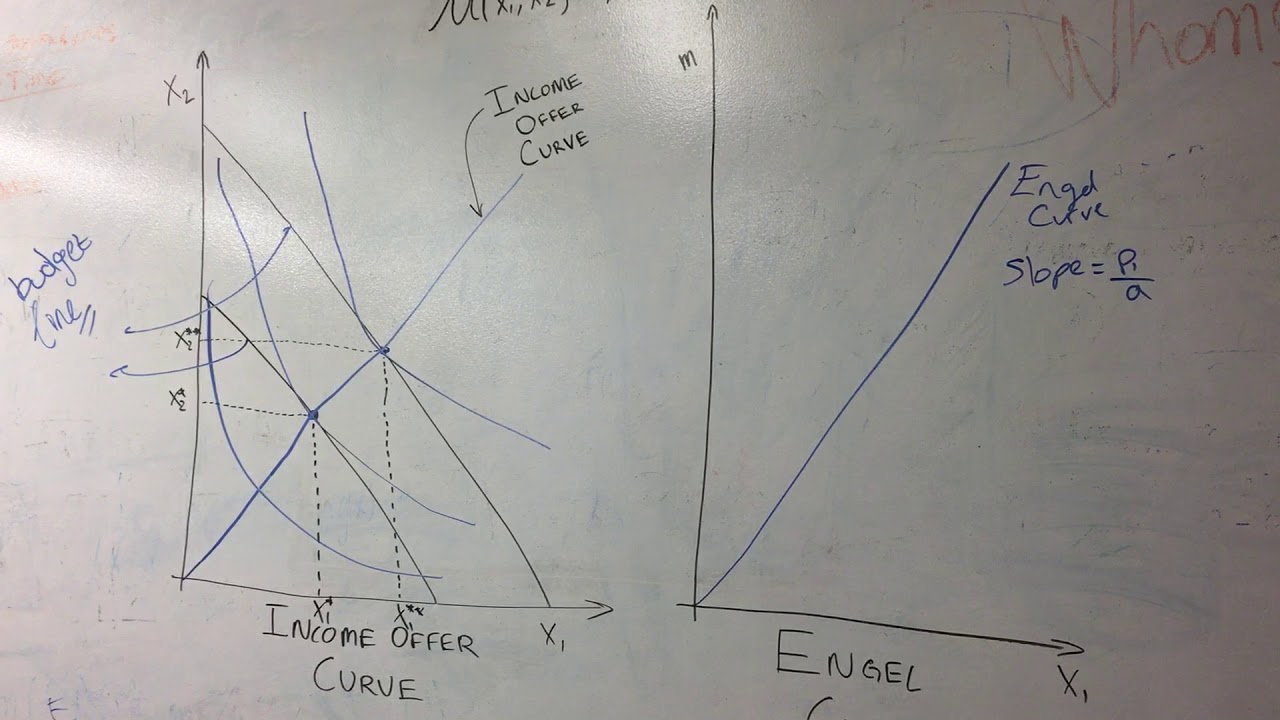 Whom
X₂
INCOME
OFFER
CURVE
budget
line
X₂**
X₂*
X₁*
X₁**
X₁
INCOME OFFER
CURVE
m
Engel
Curve
Slope = P₁/a
X₁
ENGEL